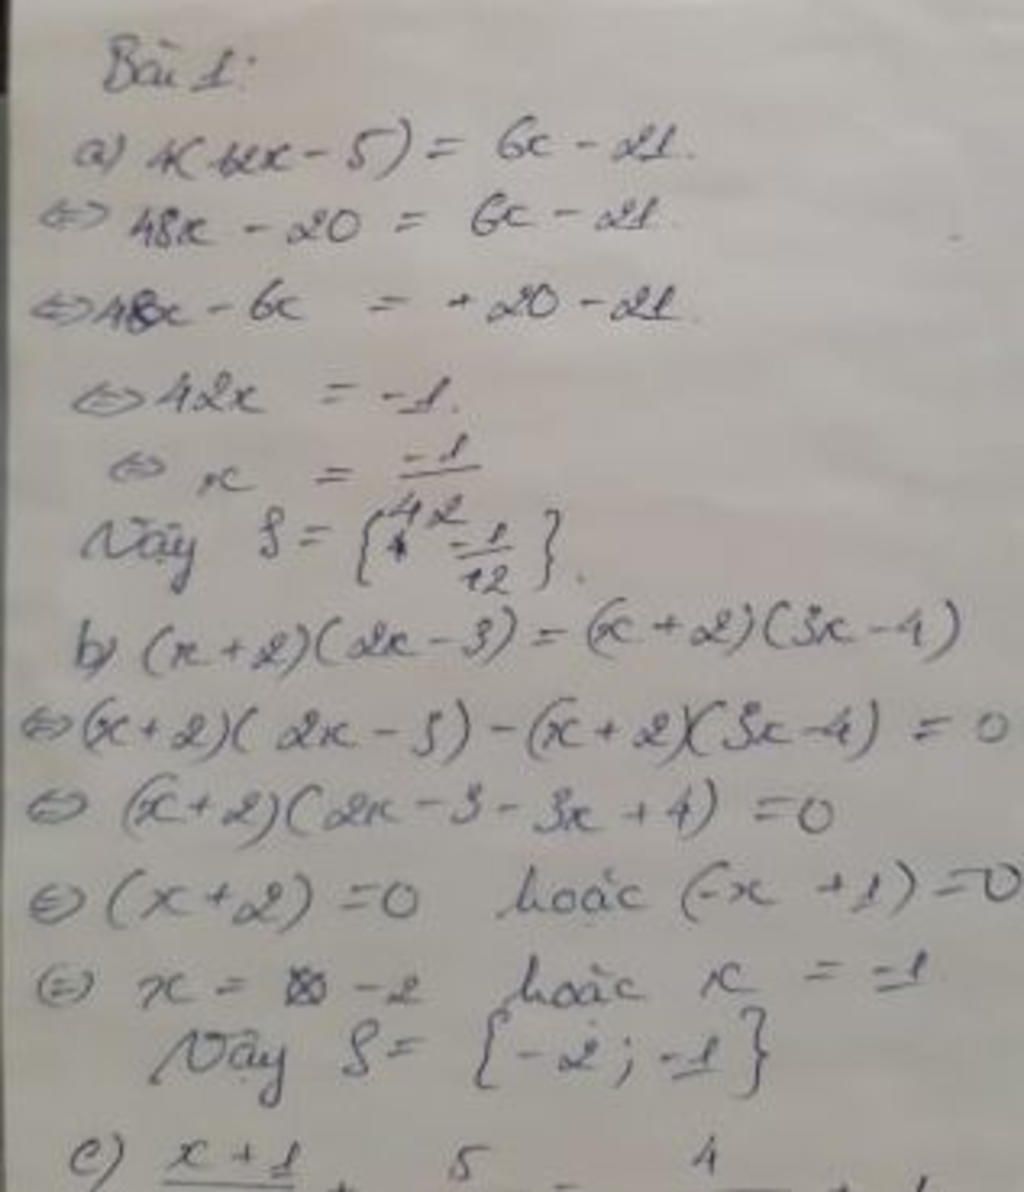 Bài 1:
a) 4(12x - 5) = 6x - 21.
⇔ 48x - 20 = 6x - 21
⇔ 48x - 6x = + 20 - 21.
⇔ 42x = -1.
⇔ x = -1/42
Vậy S = { -1/12 }.
b) (x+2)(2x-3) = (x+2)(3x-4)
⇔ (x+2)(2x-3) - (x+2)(3x-4) = 0
⇔ (x+2)(2x-3-3x+4) = 0
⇔ (x+2) = 0 hoặc (-x +1) = 0
⇔ x = -2 hoặc x = -1
Vậy S = {-2; -1}
c) x+1 + 5 = 4 + 1